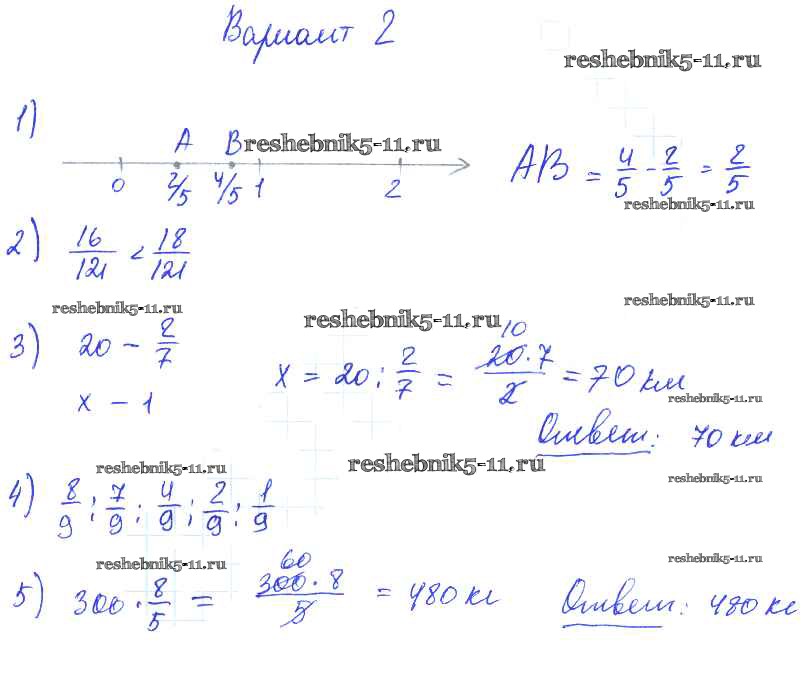 Вариант 2
reshebnik5-11.ru
1)
A B reshebnik5-11.ru
0 2/5 4/5 1 2
AB = 4/5 - 2/5 = 2/5
reshebnik5-11.ru
2) 16/121 < 18/121
reshebnik5-11.ru
reshebnik5-11.ru
reshebnik5-11.ru
3) 20 - 2/7
x - 1
10
x = 20 : 2/7 = 20·7/2 = 70 км
reshebnik5-11.ru
Ответ: 70 км
reshebnik5-11.ru
reshebnik5-11.ru
reshebnik5-11.ru
4) 8/9 ; 7/9 ; 4/9 ; 2/9 ; 1/9
reshebnik5-11.ru
reshebnik5-11.ru
60
5) 300 · 8/5 = 300·8/5 = 480 кг
Ответ: 480 кг